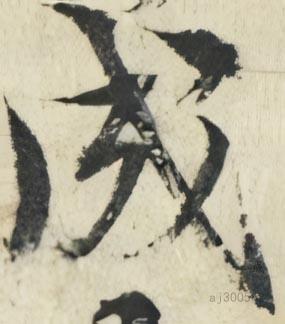 成
aj3005